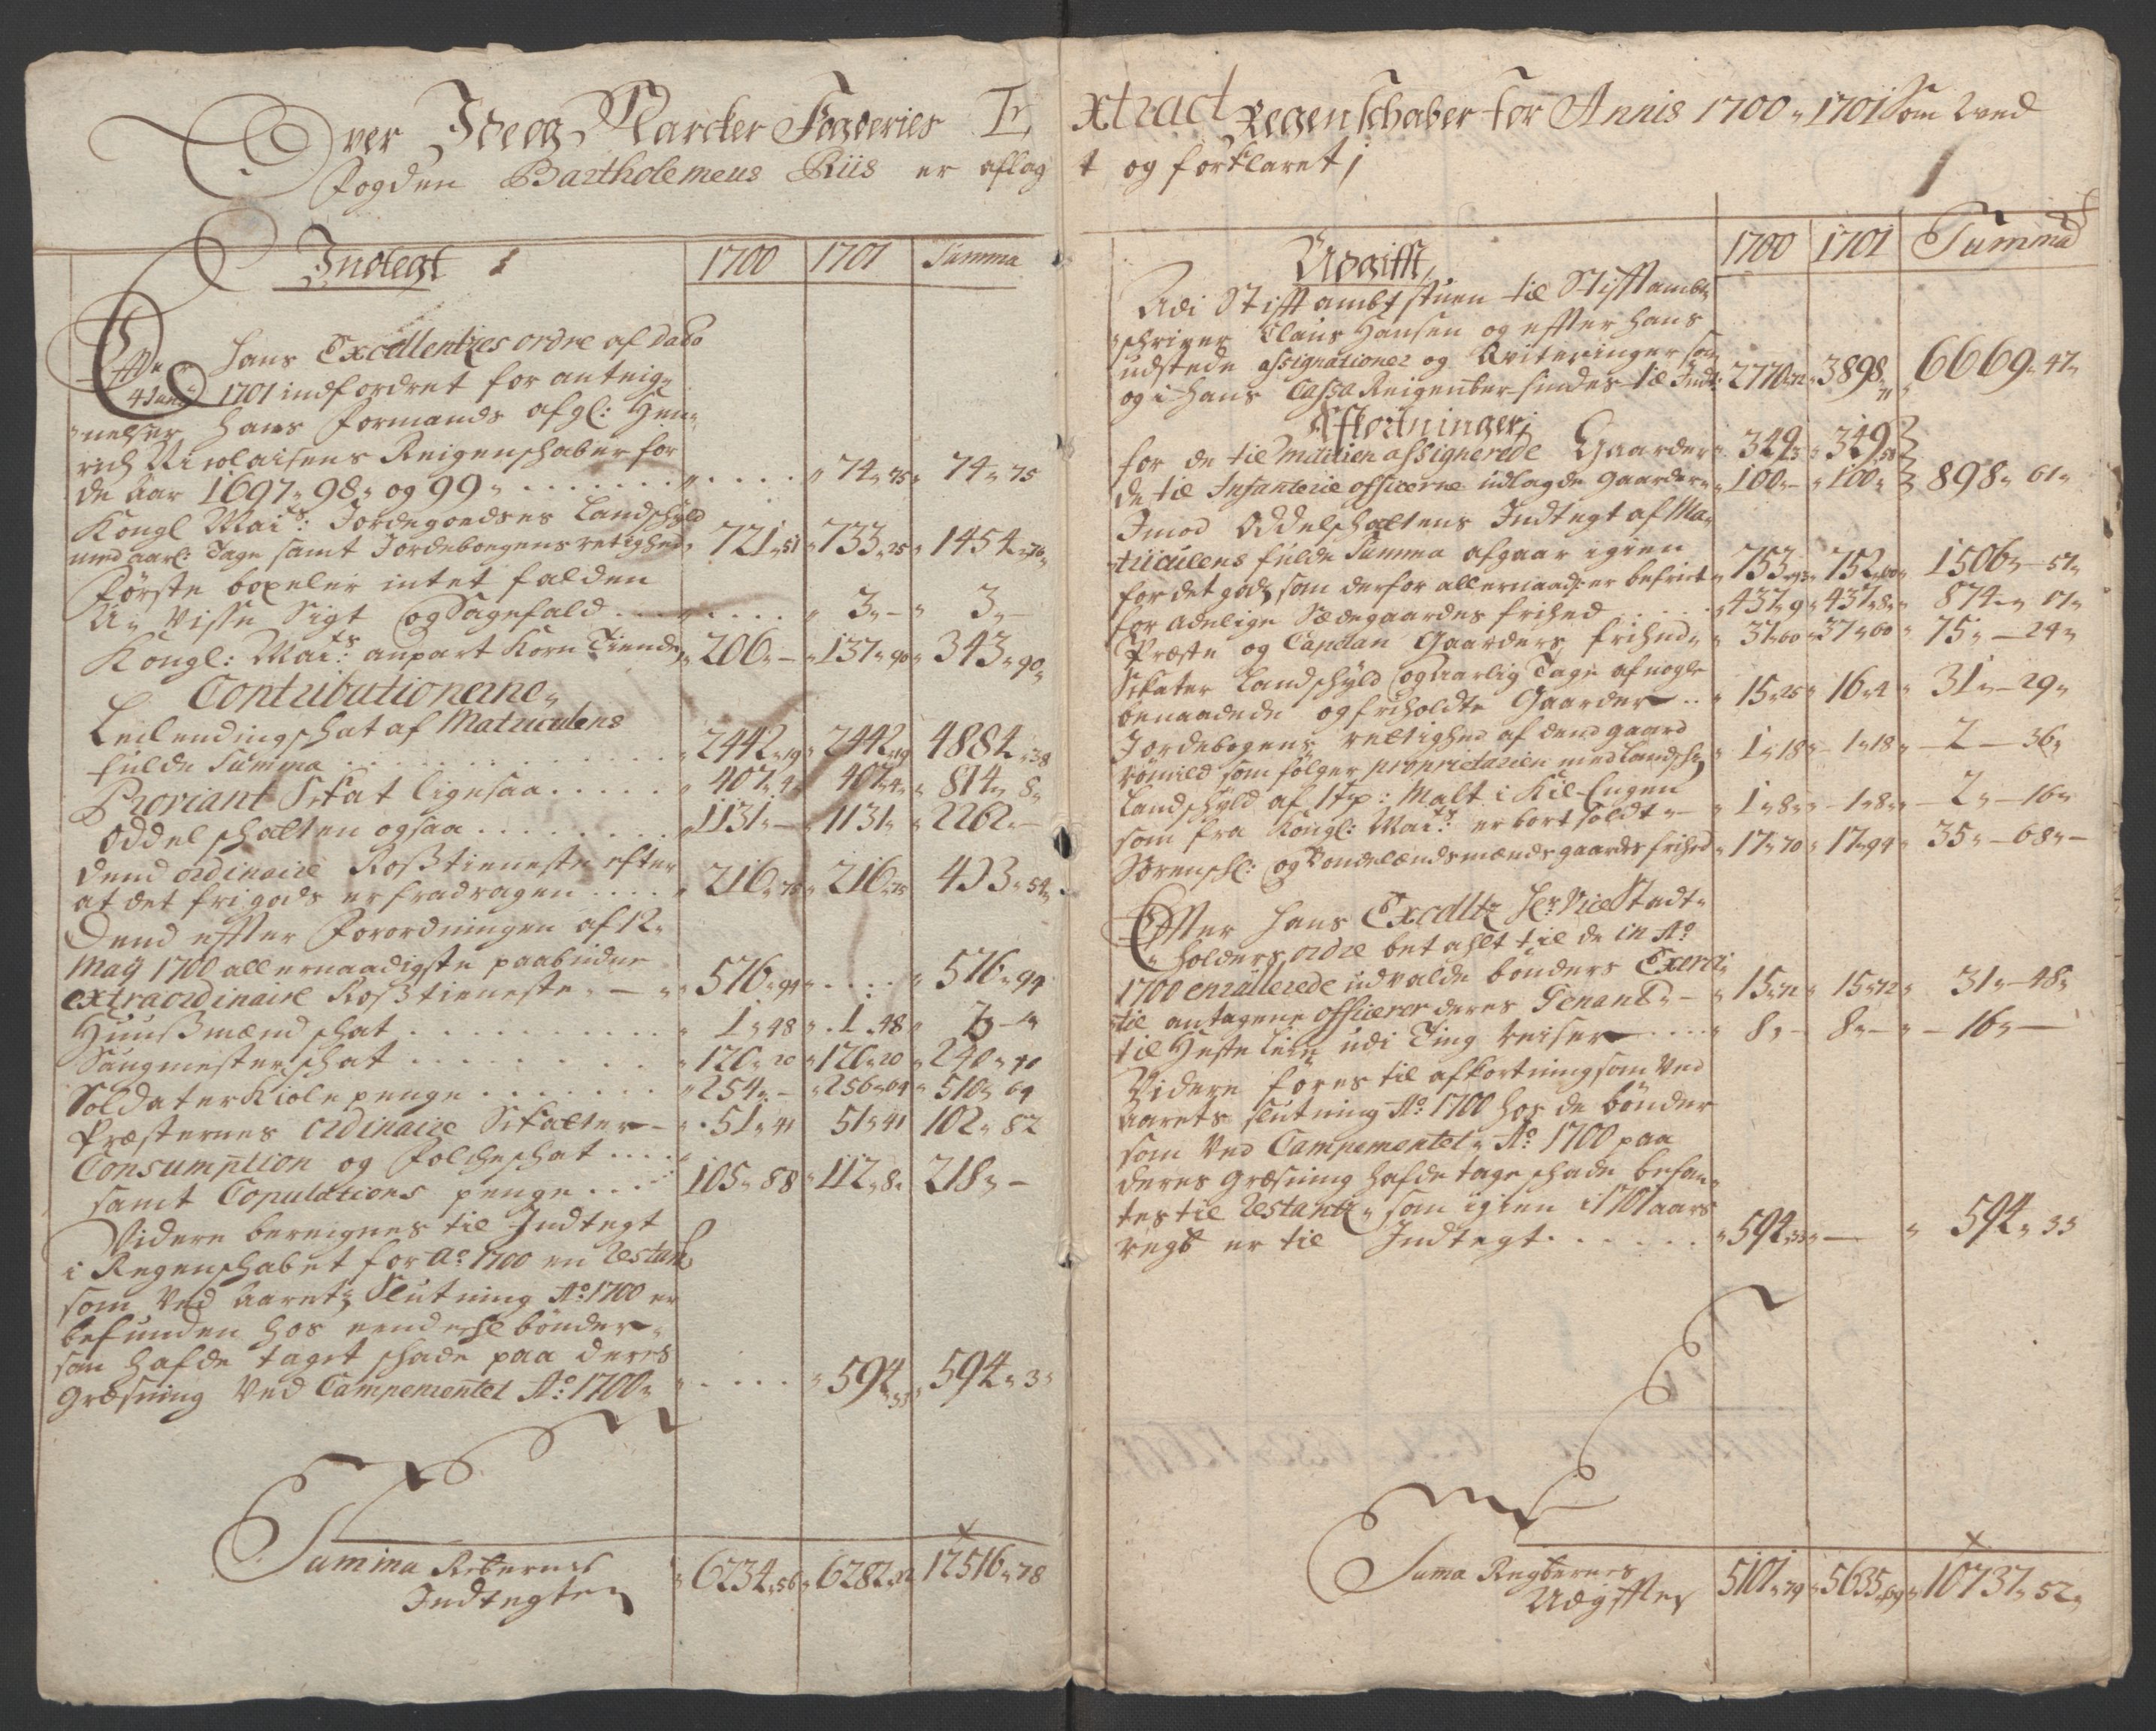 Over Ide og Marcker Fogderies Extract Regenschaber for Annis 1700 „ 1701 Som Wed
Fogden Bartholemeus Riis er aflagt og forklaret /
Indtegt 1700 1701 Summa
Effter Hans Excellentzes ordre af Dato
1701 indfordret for anteig„
nelser Hans Formands afgl: Hen„
rich Nicolaisens Reigenschaber for
de Aar 1697„ 98„ og 99„ . . . . . „ 74„75 „ 74„75
Kongl Maits: Jordegodses Landschyld
med aarl: Tage samt Jordebogens retighed„ 721„51 „733„25 „1454„76„
Første boxeler intet falden
U„ Visse Sigt og Sagefald . . . „ 3„— „ 3„—
Kongl: Maits: anpart Korn Tiende „206„— „137„90 „343„90„
Contributionerne„
Leilendingschat af Matriculens
fulde Summa . . . . . „2442„19 „2442„19 4884„38
Proviant Skat ligesaa . . . . „407„4 „407„4„ „814„8„
Oddelschatten ogsaa . . . . „1131„— „1131„ „2262„—
Dend ordinaire Rosztieneste efter
at det frigods er fradragen . . . . „216„75 „216„75 433„54„
Dend effter Forordningen af 12„
Maÿ 1700 allernaadigste paabudne
extraordinaire Rosztieneste„ — „576„94 „. . . . „576„94
Huuszmænd schat . . . . . „1„48 „1„48 „ 3„—„
Saugmester schat . . . . . „120„20 „120„20 „240„40
Soldater Kiole penge . . . . . „254„— „256„64 „510„64
Præsternes ordinaire Skatter — „51„41 51„41 102„82
Consumption og Folcheschat . . . .
samt Copulations penge . . . . 105„88 „112„8„ 218„—
Videre bereignes til Indtegt
i Regenschabet for Ao 1700 en Restantz
som Ved Aarets Slutning Ao: 1700 er
befunden hos eendeel bønder„
som hafde taget schade paa deres
græsning Ved Campementet Ao: 1700„ „. . . . „594„33 „594„33
Summa
Indtegter „6234„56„ 6282„22 12516„78
Udgifft, 1700 1701 Summa
Udi Stifftambtstuen til Stifftambt„
schriver Claus Hansen og effter hans
udstede assignationer og Qviteringer som
og i hans Cassa Reigenber findes til Indt: „2770„72 „3898„71 „6669„47„
Afkortninger
for de til Militien assignerede Gaarder „349„3 „349„58
de til Infanterie officerne udlagde gaarder „100„— „100„ 898„61„
Imod Oddelschattens Indtegt af Ma„
triculens fulde Summa afgaar igien
for det gods som derfor allernaadigst er befriet „753„93„ 752„60„ 1506„—57„
for Adelige Sædegaardes frihed . . . . „437„9 „437„88„ 874„—„1„
Præste og Capelan Gaarders frihed„ „37„60 „37„60 „75„—24„
Skatter Landschyld og aarlig Tage af nogle
benaadede og friholdte Gaarder . . „15„25 „16„4 „31„—29„
Jordebogens rettighed af dend gaard
Rømild som følger proprietarien med Landschyld „1„18„ — 1„18„ — 2 — 36„
Landschyld af 1 Tp: Malt i Kil-Engen
som fra Kongl: Maits: er bortsoldt„ — „1„8„ — 1„8„ — 2„—16„
Sorenschr: og Bondelændsmænds gaardes frihed „17„70 „17„94 „35„—68„—
Effter Hans Excelltz Hr: Vice Stadt„
holders ordre betahlt til de in Ao
1700 enrullerede udvalde bønders Exerci„
tii antagene officerer deres Tenance„ — „15„72 „15„72„ 31„—48„
til Heste leie udi Ting reiser . . . . „8„— 8„— „ — 16„ —
Videre føres til afkortning som Ved
Aarets slutning Ao: 1700 hos de bønder
som Ved Campementet„ Ao: 1700 paa
deres græsning hafde tage schade befan„
tes til Restantz„ som igien i 1701 aars
regsb er til Indtegt . . . . . „594„33„ — „ 594„33
Suma
Udgiffter 5101„79 „5635„69 „10737„52„